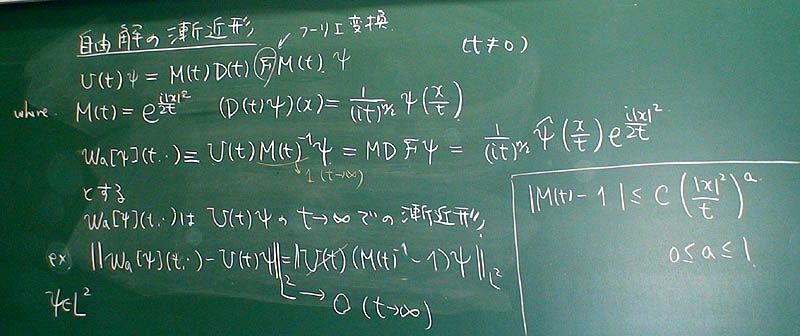 自由解の漸近形
フーリエ変換
(t≠0)
U(t)ψ = M(t)D(t)FM(t)ψ
where M(t) = e^{i|x|²/2t} (D(t)ψ)(x) = 1/(it)^{n/2} ψ(x/t)
Wa[ψ](t,·) ≡ U(t)M(t)^{-1}ψ = MDFψ = 1/(it)^{n/2} ψ̂(x/t) e^{i|x|²/2t}
→ 1 (t→∞)
とする
Wa[ψ](t,·)は U(t)ψの t→∞での漸近形.
ex) ‖Wa[ψ](t,·) - U(t)ψ‖_{L²} = ‖U(t)(M(t)^{-1} - 1)ψ‖_{L²}
ψ∈L² → 0 (t→∞)
|M(t) - 1| ≤ C (|x|²/t)^a
0≤a≤1